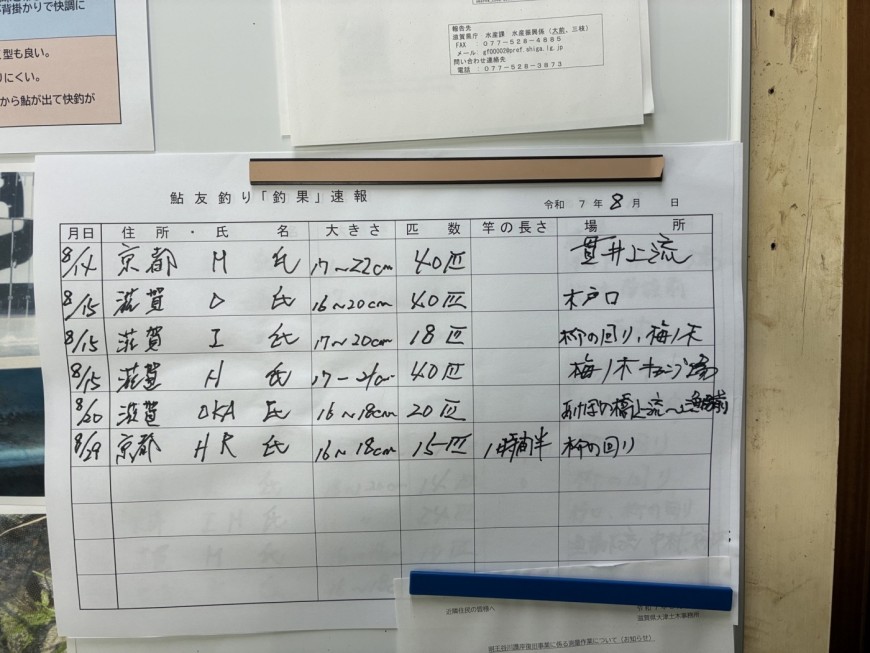 背掛かりで快調に
型も良い。
りにくい。
から鮎が出て快釣が
報告先
滋賀県庁 水産課 水産振興係(太前、三枝)
FAX : 077-528-4885
メール:gf00002@pref.shiga.lg.jp
問い合わせ連絡先
電話:077-528-3873
鮎友釣り「釣果」速報
令和 7年 8月 日
月日 住所・氏名 大きさ 匹数 竿の長さ 場所
8/14 京都 M 氏 17~22cm 40匹 貫井上流
8/15 滋賀 D 氏 16~20cm 40匹 木戸口
8/15 滋賀 I 氏 17~20cm 18匹 柳の回り、梅ノ木
8/15 滋賀 H 氏 17-21cm 40匹 梅ノ木キャンプ場
8/20 滋賀 OKA 氏 16~18cm 20匹 橋上流
8/29 京都 HR 氏 16~18cm 15匹 1時間半 柳の回り
近隣住民の皆様へ
滋賀県大津土木事務所
(お知らせ)